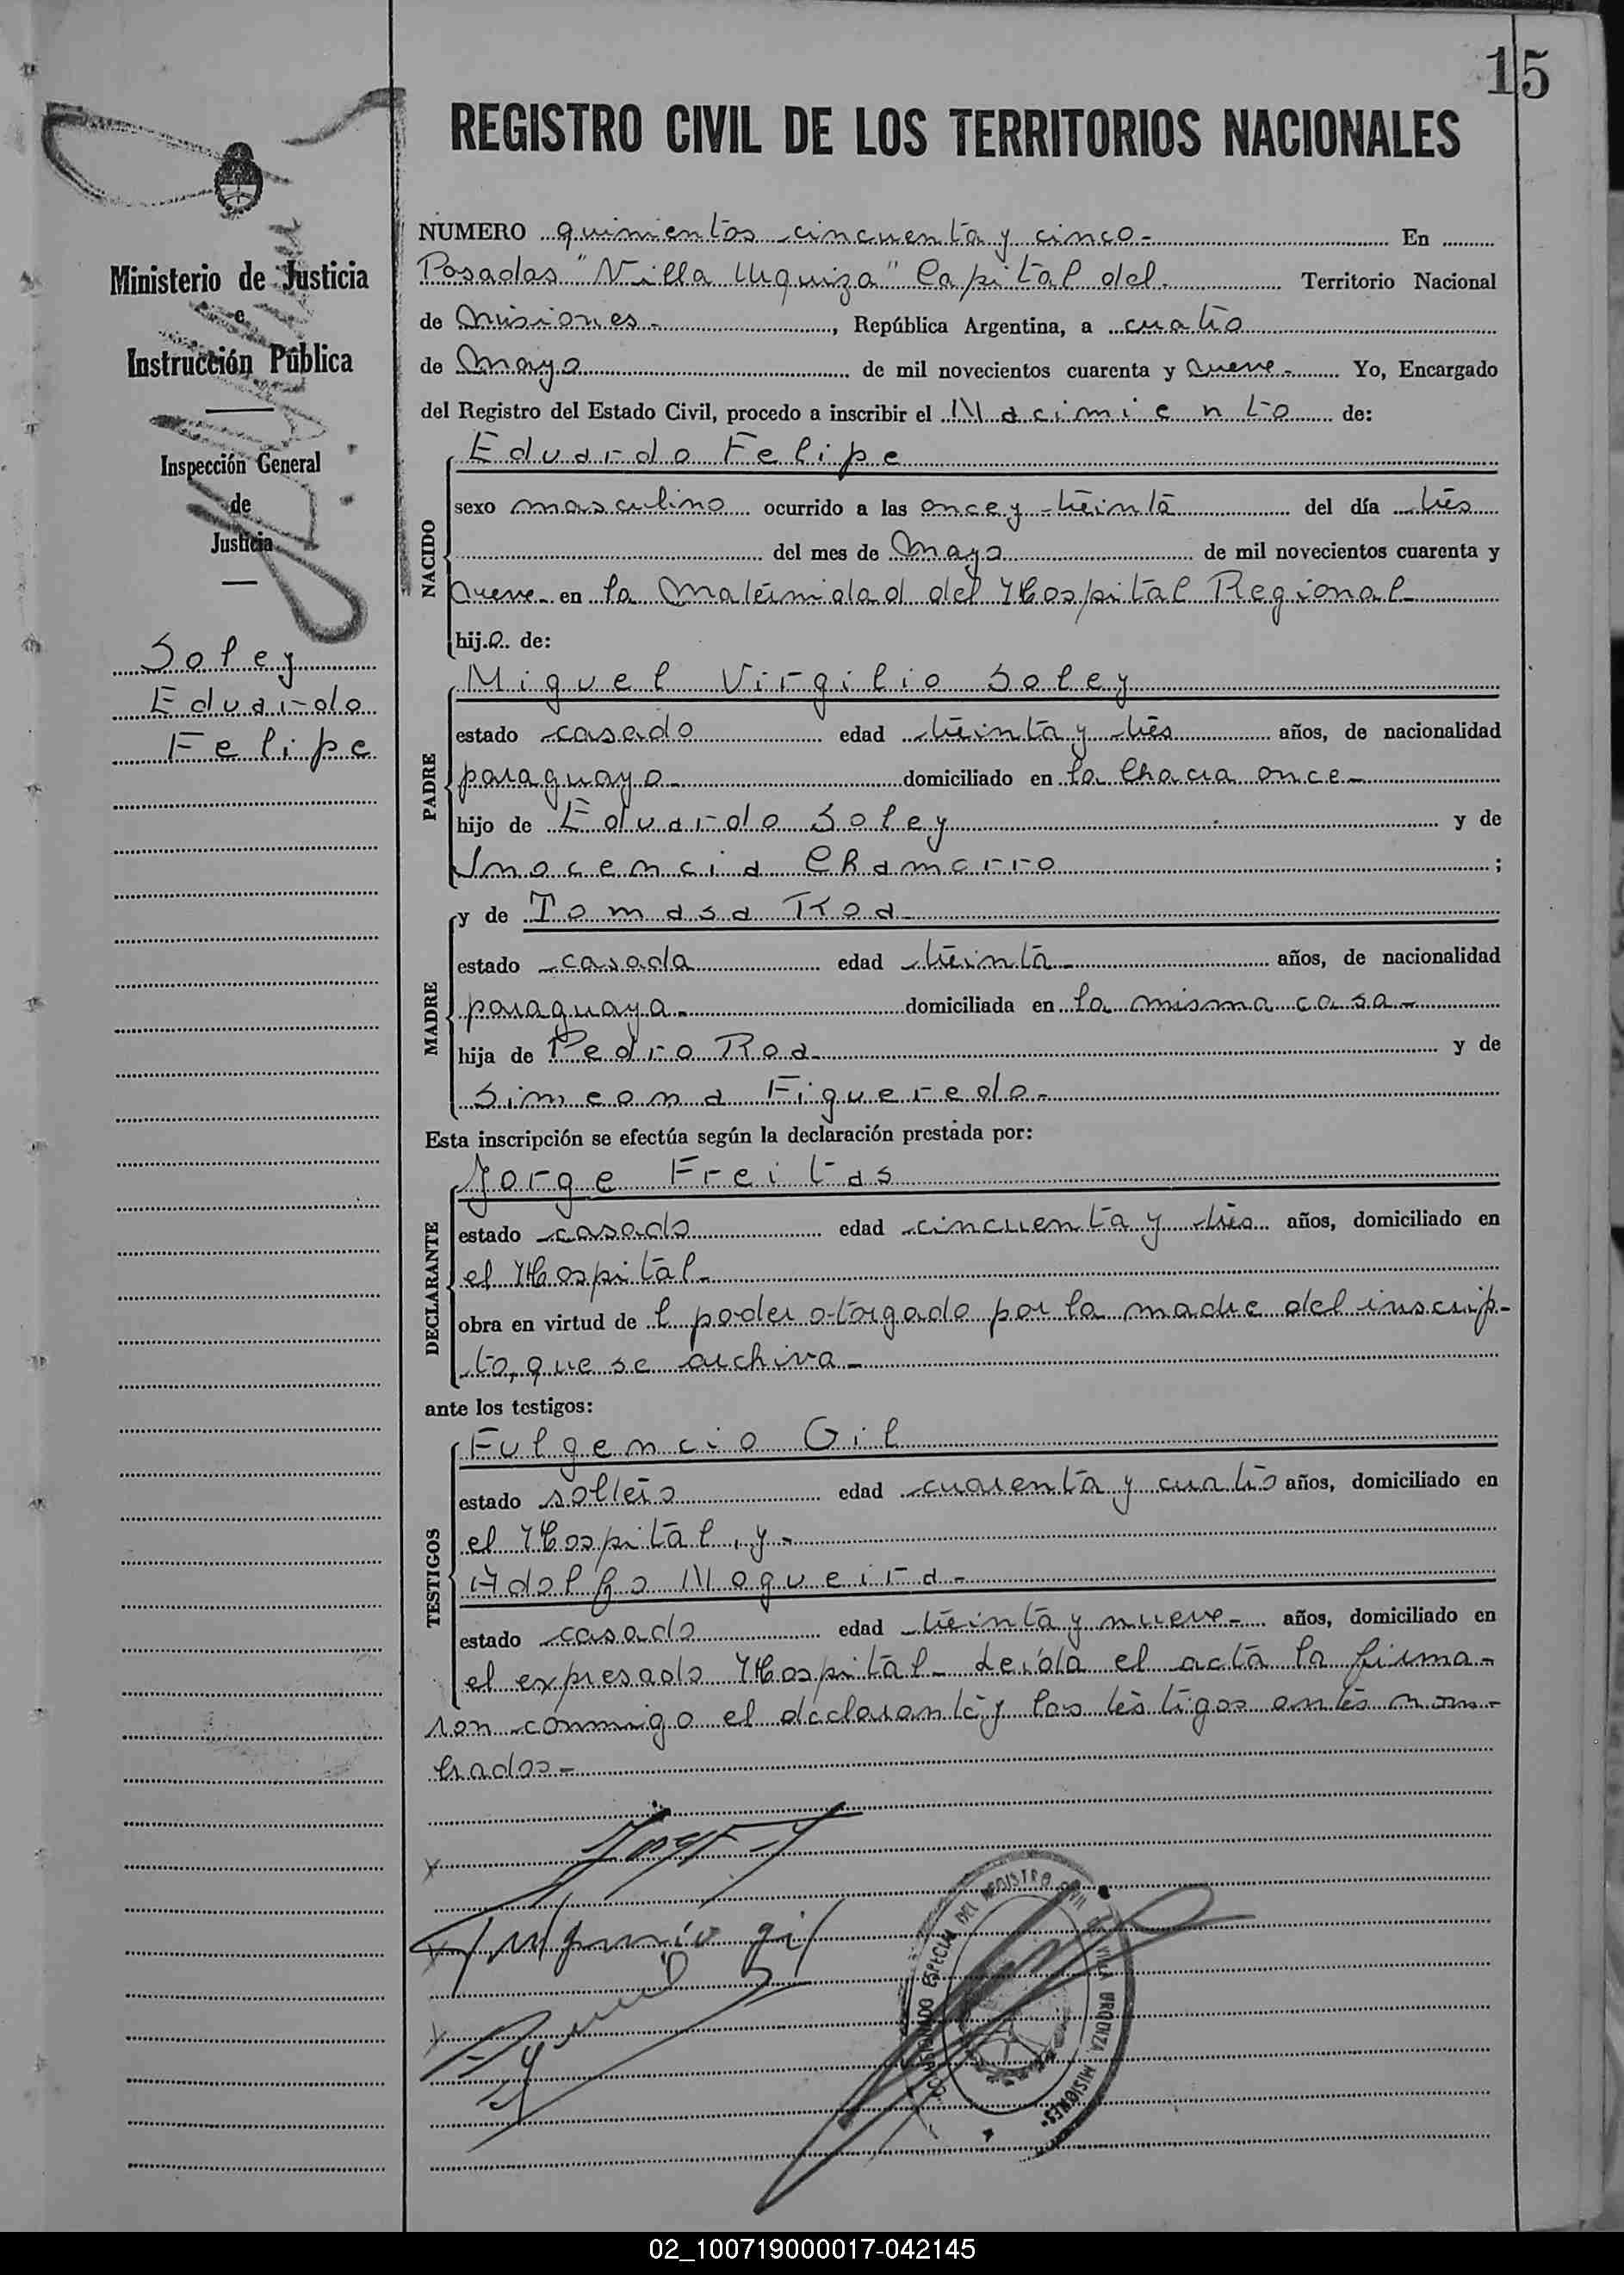 15
REGISTRO CIVIL DE LOS TERRITORIOS NACIONALES
Ministerio de Justicia
e
Instrucción Pública
Inspección General
de
Justicia
Soley
Eduardo
Felipe
NUMERO quinientos cincuenta y cinco- En
Posadas "Villa Urquiza" Capital del Territorio Nacional
de Misiones-, República Argentina, a cuatro
de Mayo de mil novecientos cuarenta y nueve- Yo, Encargado
del Registro del Estado Civil, procedo a inscribir el Nacimiento de:
NACIDO
Eduardo Felipe
sexo masculino ocurrido a las once y treinta del día tres
del mes de Mayo de mil novecientos cuarenta y
nueve- en la Maternidad del Hospital Regional-
hijo de:
PADRE
Miguel Virgilio Soley
estado casado edad treinta y tres años, de nacionalidad
paraguayo- domiciliado en la Chacra once-
hijo de Eduardo Soley y de
Inocencia Chamorro ;
MADRE
y de Tomasa Roa-
estado casada edad treinta- años, de nacionalidad
paraguaya- domiciliada en la misma casa-
hija de Pedro Roa- y de
Simeona Figueredo-
Esta inscripción se efectúa según la declaración prestada por:
DECLARANTE
Jorge Freitas
estado casado edad cincuenta y tres años, domiciliado en
el Hospital-
obra en virtud de l poder otorgado por la madre del inscrip-
to, que se archiva-
ante los testigos:
TESTIGOS
Fulgencio Gil
estado soltero edad cuarenta y cuatro años, domiciliado en
el Hospital, y-
Adolfo Nogueira-
estado casado edad treinta y nueve- años, domiciliado en
el expresado Hospital- Leída el acta la firma-
ron conmigo el declarante y los testigos antes nom-
brados-
Fulgencio gil
ESPECIAL DEL REGISTRO CIVIL DE VILLA URQUIZA MISIONES
02_100719000017-042145